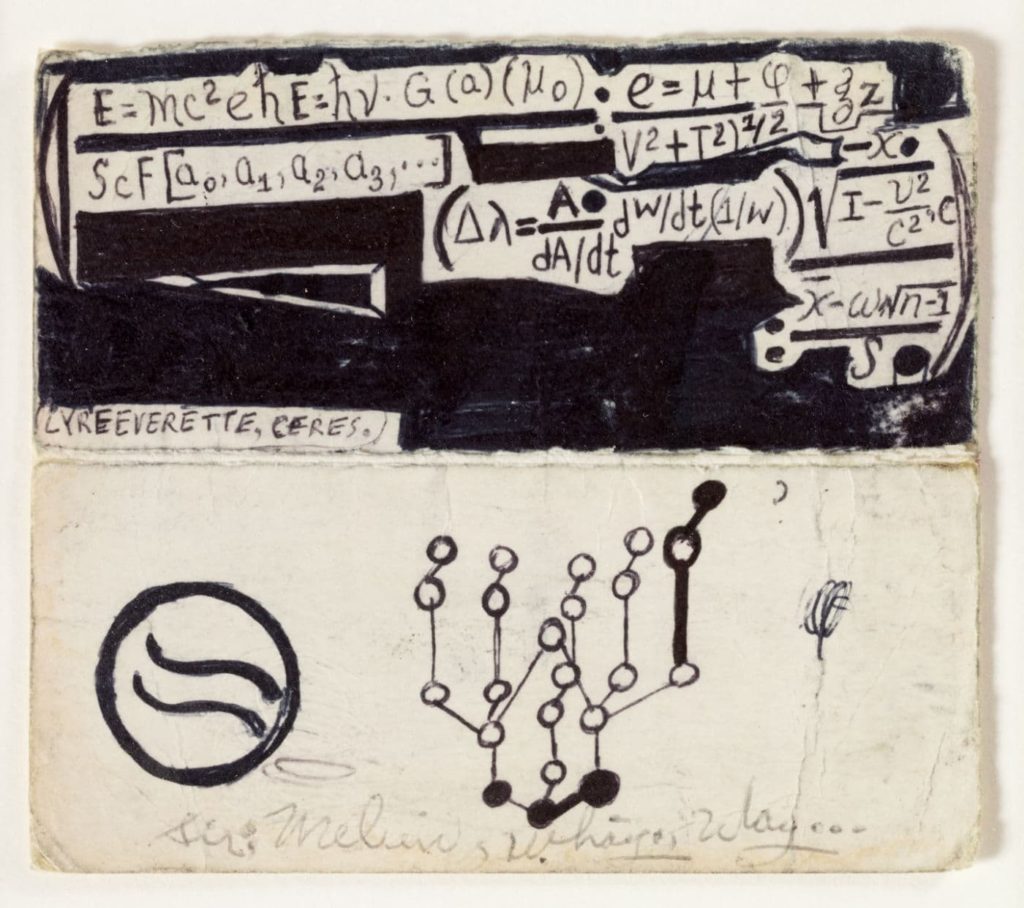 E=mc²eħE=ħν·G(a)(μ₀):e=μ+φ+
V²+T²)^1/2 -x̄•
ScF[a₀,a₁,a₂,a₃,...]
(Δλ=A•/dA/dt dw/dt(1/w))√I-v²/c²,c
x̄-ωN√n-1
S
(LYREEVERETTE, CERES.)
day...